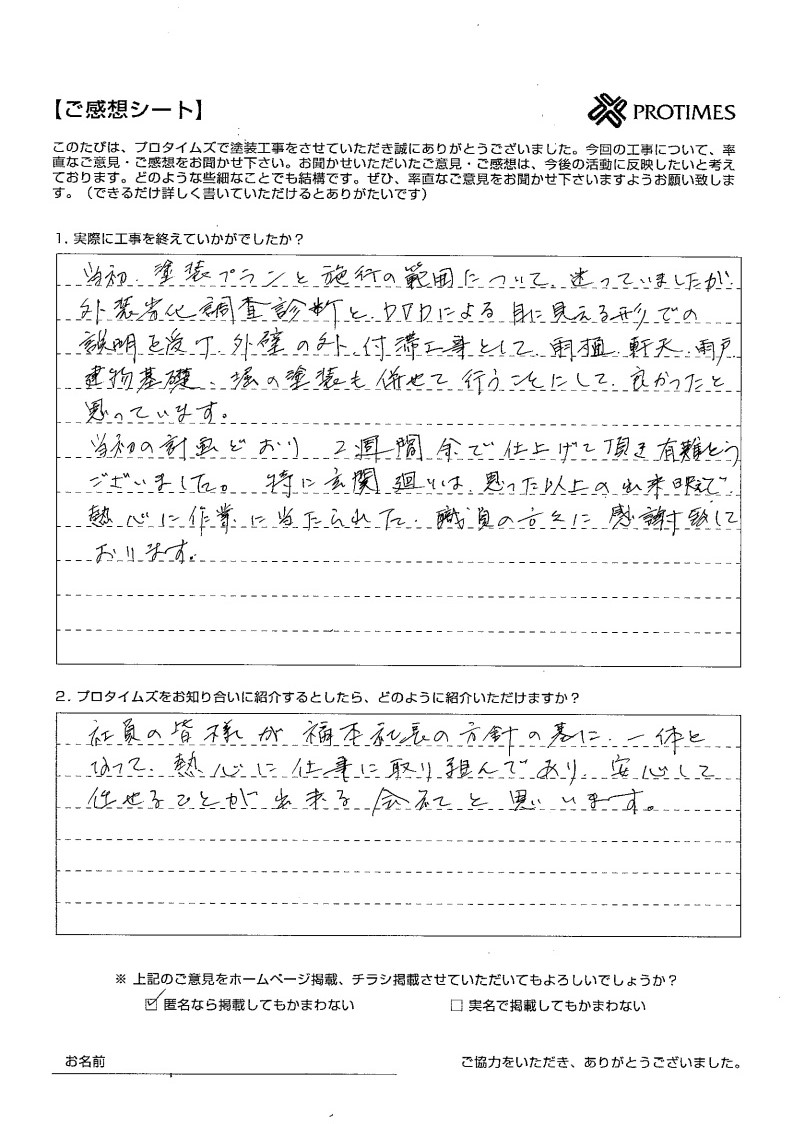 【ご感想シート】
PROTIMES
このたびは、プロタイムズで塗装工事をさせていただき誠にありがとうございました。今回の工事について、率
直なご意見・ご感想をお聞かせ下さい。お聞かせいただいたご意見・ご感想は、今後の活動に反映したいと考え
ております。どのような些細なことでも結構です。ぜひ、率直なご意見をお聞かせ下さいますようお願い致しま
す。（できるだけ詳しく書いていただけるとありがたいです）
1. 実際に工事を終えていかがでしたか？
当初、塗装プランと施行の範囲について、迷っていましたが、
外装劣化調査診断と、DVDによる目に見える形での
説明を受け、外壁の外、付滞工事として、雨樋、軒天、雨戸
建物基礎、堀の塗装も併せて行うことにして、良かったと
思っています。
当初の計画どおり 2週間余で仕上げて頂き有難とう
ございました。 特に玄関廻りは、思った以上の出来映えで、
熱心に作業に当たられた、職員の方々に感謝致して
おります。
2. プロタイムズをお知り合いに紹介するとしたら、どのように紹介いただけますか？
社員の皆様が福本社長の方針の基に、一体と
なって、熱心に仕事に取り組んであり、安心して
任せることが出来る会社と思います。
※ 上記のご意見をホームページ掲載、チラシ掲載させていただいてもよろしいでしょうか？
☑ 匿名なら掲載してもかまわない □ 実名で掲載してもかまわない
お名前 ご協力をいただき、ありがとうございました。